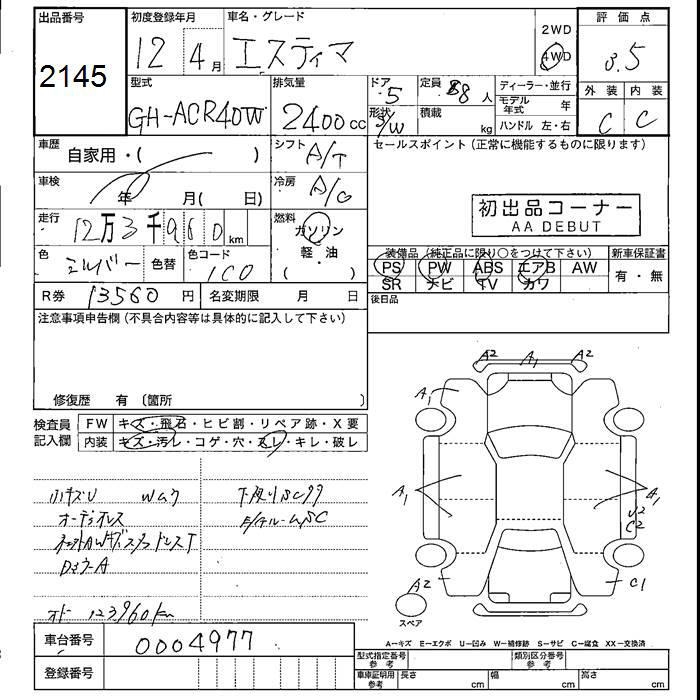 出品番号 初度登録年月 車名・グレード 2WD 評価点
2145 12 4月 エスティマ 4WD 3.5
型式 排気量 ドア 5 定員 8人 ディーラー・並行 外装 内装
GH-ACR40W 2400cc 形状 S/W 積載 kg モデル年式 年 C C
ハンドル 左・右
車歴 自家用・( ) シフト A/T セールスポイント(正常に機能するものに限ります)
車検 年 月( 日) 冷房 A/C
初出品コーナー
AA DEBUT
走行 12万3千960km 燃料 ガソリン
軽・油
色 シルバー 色替 色コード 1C0
装備品(純正品に限り○をつけて下さい) 新車保証書
PS PW ABS エアB AW 有・無
SR ナビ TV カワ
R券 13560円 名変期限 月 日 後日品
注意事項申告欄(不具合内容等は具体的に記入して下さい)
修復歴 有 〔箇所 〕
検査員 FW キズ・飛石・ヒビ割・リペア跡・X要
記入欄 内装 キズ・汚レ・コゲ・穴・スレ・キレ・破レ
A2 A1 A2
A1
A1 A1
C2
A2 C1
スペア
オーディオレス
オドー 123960km
車台番号 0004977
登録番号
A-キズ E-エクボ U-凹み W-補修跡 S-サビ C-腐食 XX-交換済
型式指定番号 参考 類別区分番号 参考
車庫証明用 参考 長さ cm 幅 cm 高さ cm